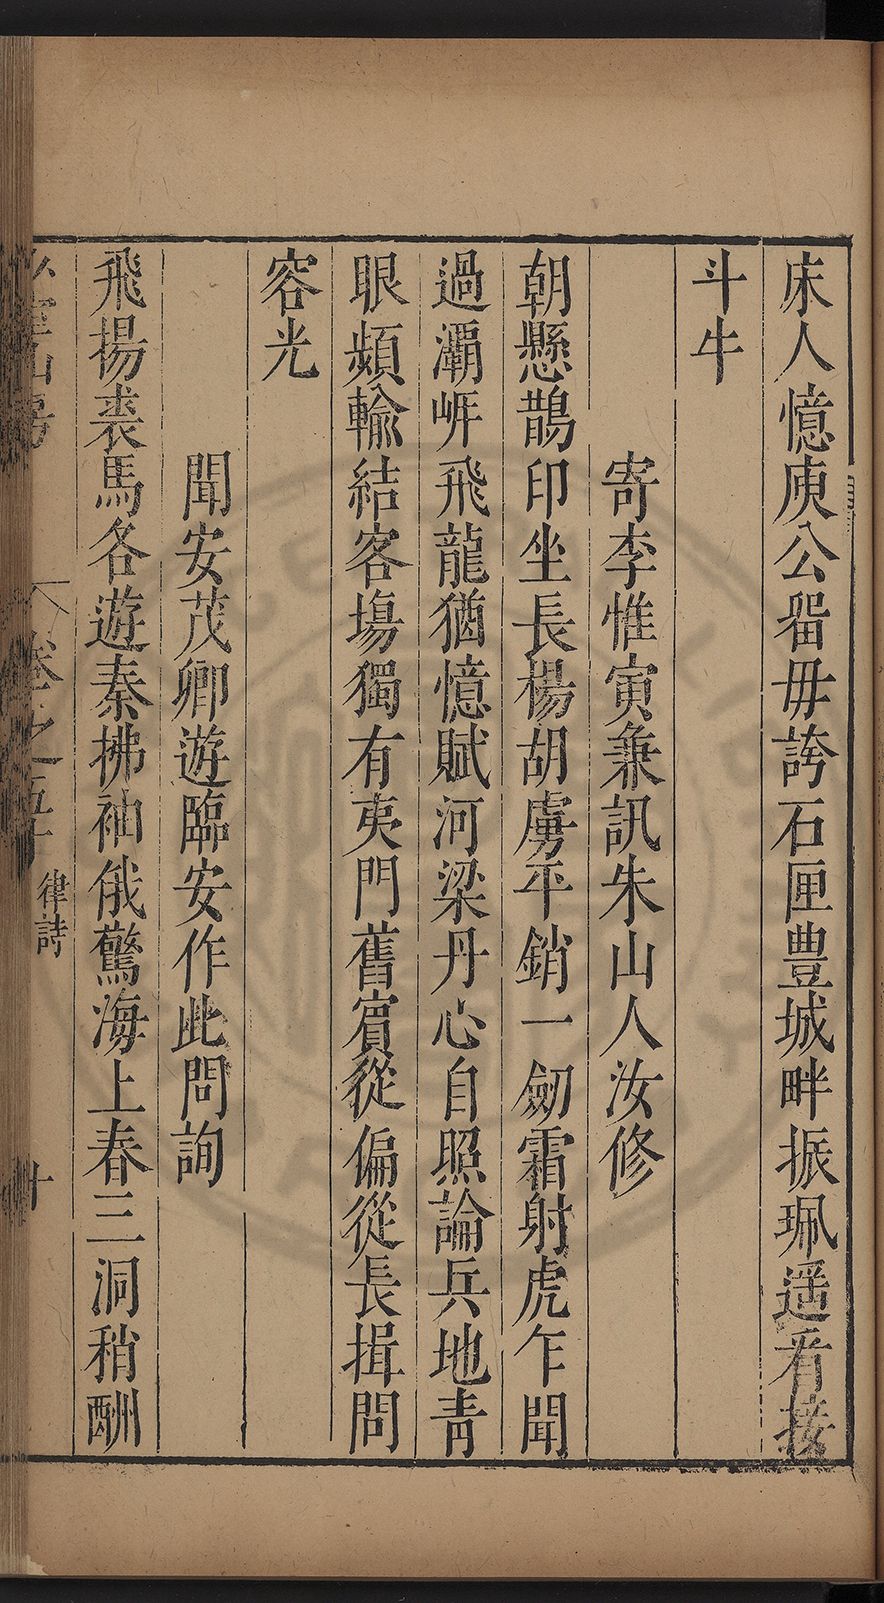 床人憶庾公畱毋誇石匣豊城畔振珮遥看接
斗牛
寄李惟寅兼訊朱山人汝修
朝懸鵲印坐長楊胡虜平銷一劒霜射虎乍聞
過灞㟁飛龍猶憶賦河梁丹心自照論兵地青
眼頻輸結客塲獨有夷門舊賔從偏從長揖問
容光
聞安茂卿遊臨安作此問詢
飛揚裘馬各遊秦拂袖俄驚海上春三洞稍酬
卷之五十
律詩
十